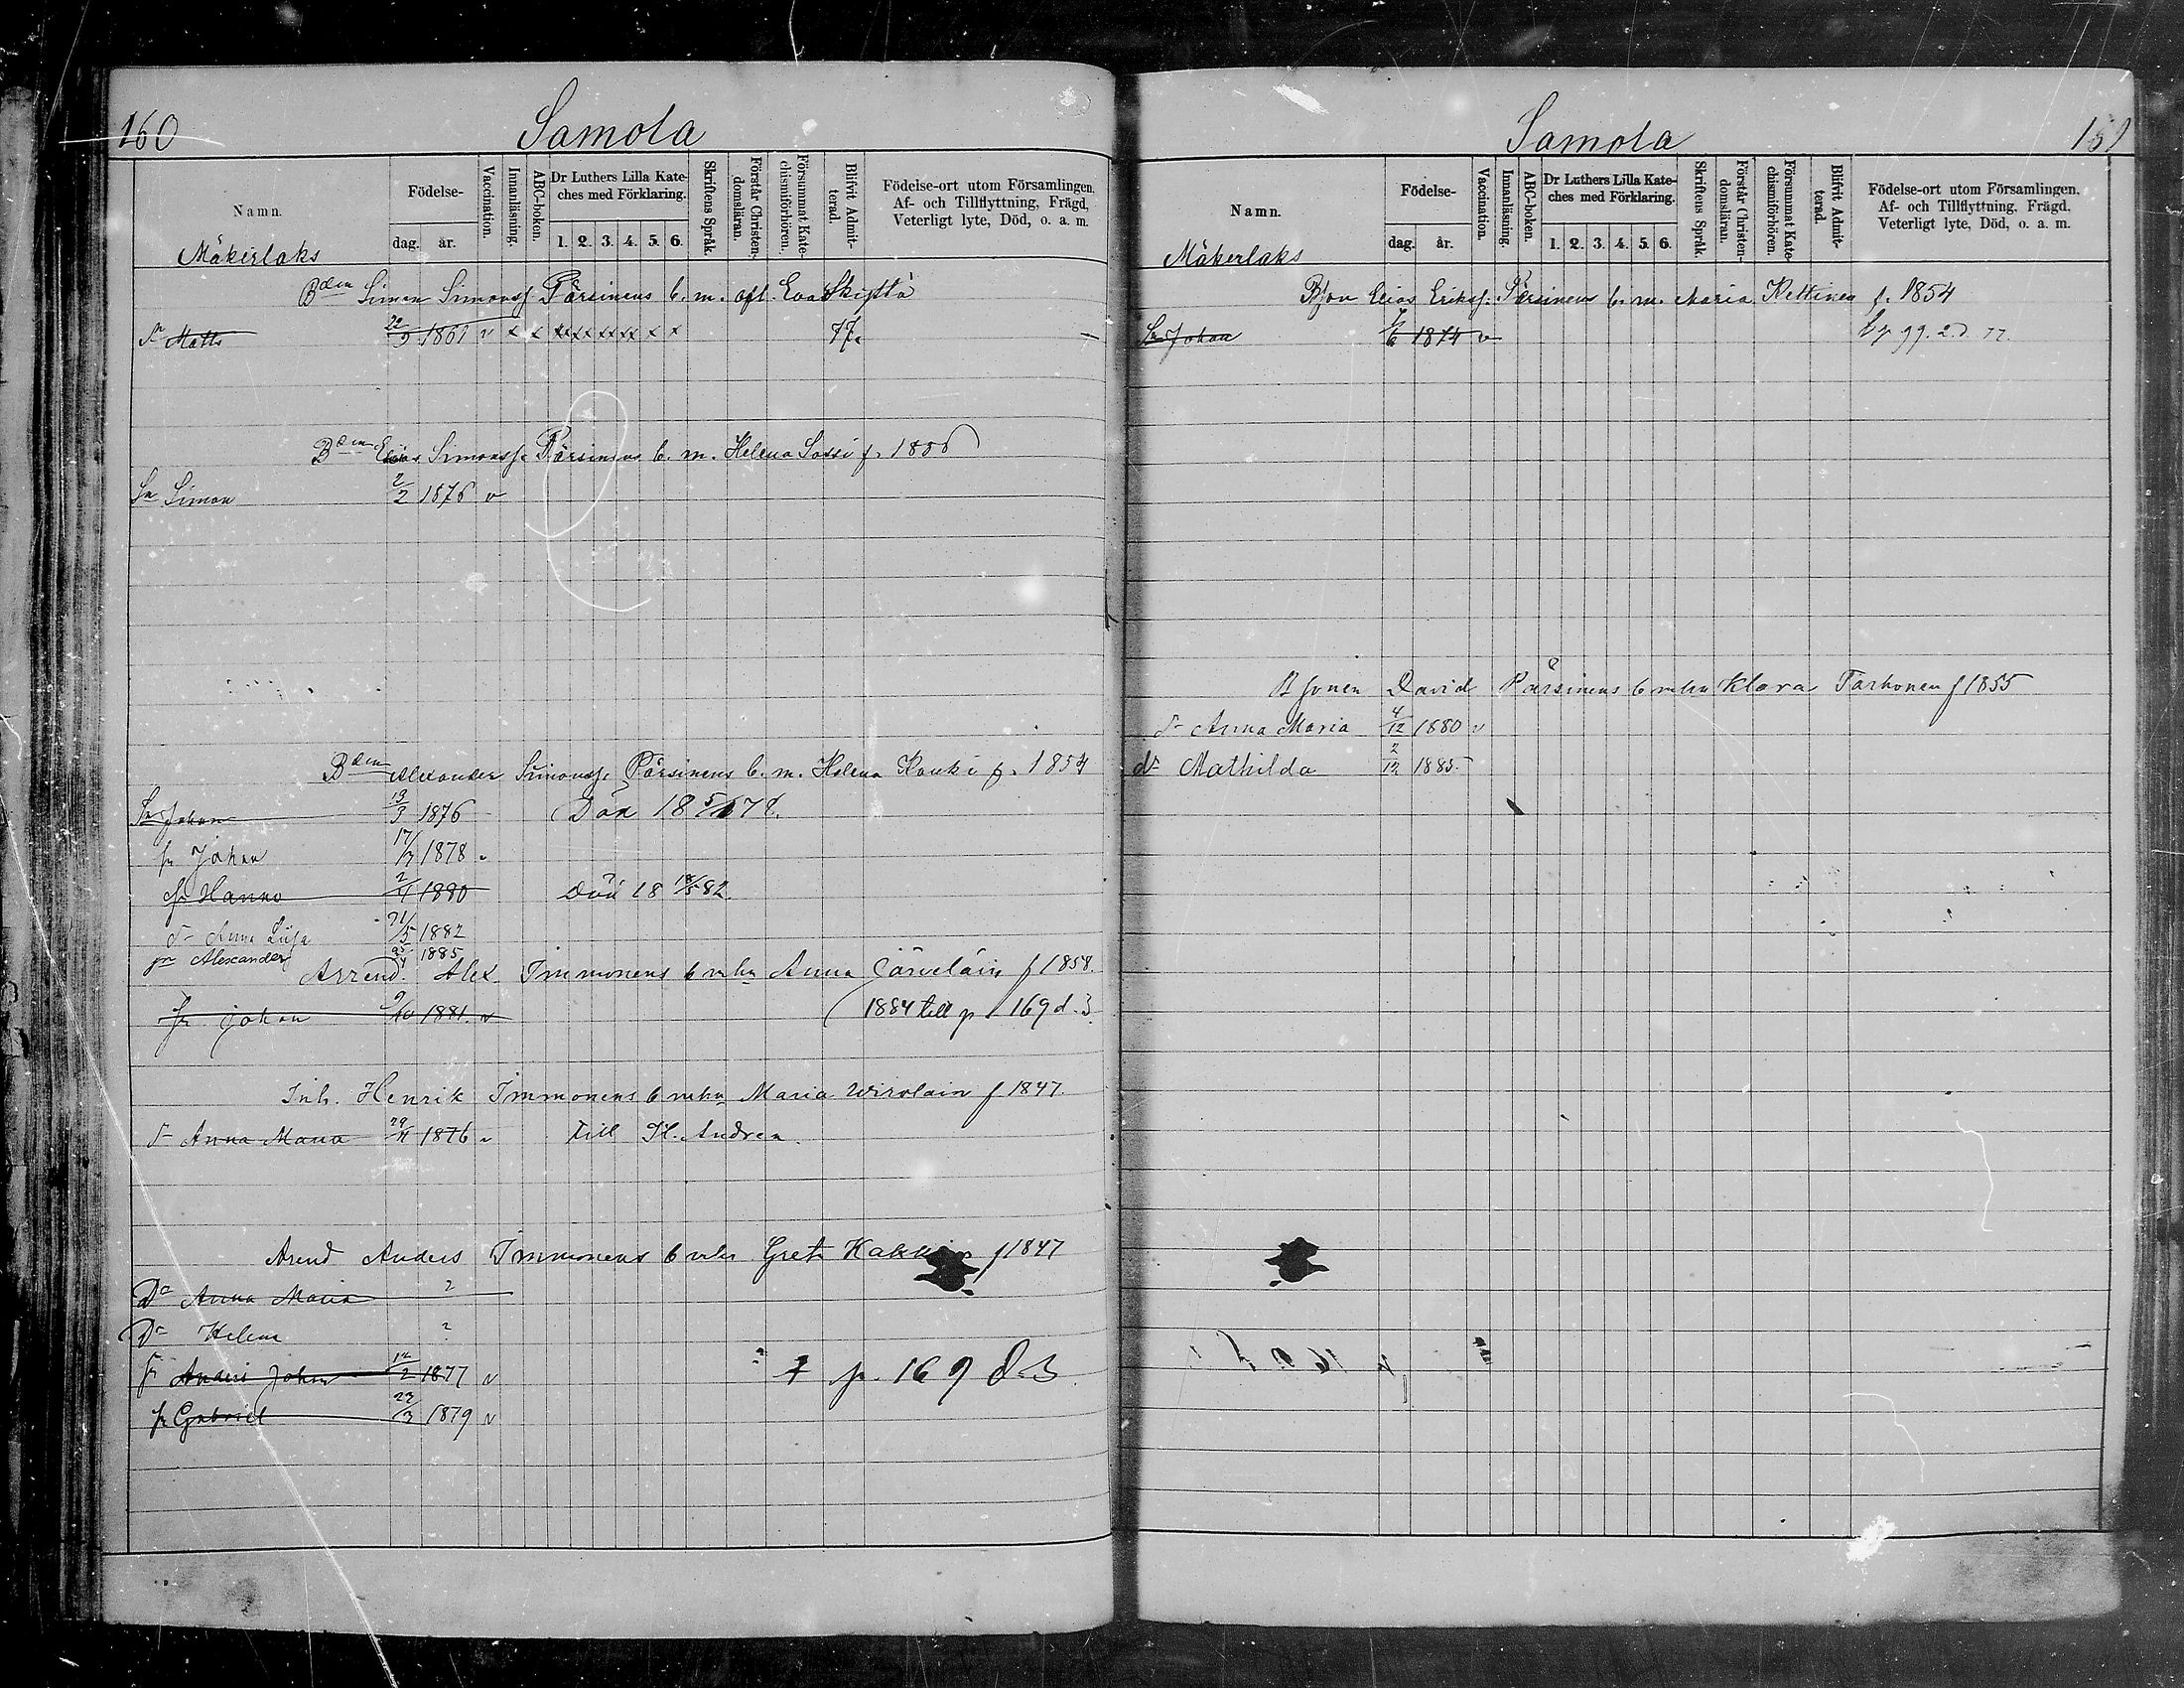 160
Samola
Namn.
Födelse-
dag. år.
Vaccination.
Innanläsning.
ABC-boken.
Dr Luthers Lilla Kateches med Förklaring.
1. 2. 3. 4. 5. 6.
Skriftens Språk.
Förstår Christendomsläran.
Försummat Katechismiförhören.
Blifvit Admitterad.
Födelse-ort utom Församlingen.
Af- och Tillflyttning, Frägd,
Veterligt lyte, Död, o. a. m.
Mäkerlaks
Bden Simon Simonss. Pärsinens b. m. afl. Eva Skyttä
Sn Matts 22/9 1861 v x x xx xx xx x x 77.
Bden Elias Simonss. Pärsinens b. m. Helena Sassi f. 1856
Sn Simon 2/2 1876 v
Bden Alexander Simonss. Pärsinens b. m. Helena Kauki f. 1854
Sn Johan 13/3 1876 Död 18 5/6 78.
Sn Johan 17/3 1878 v
Sn Hanno 2/4 1880 Död 18 18/5 82.
Dr Anna Liisa 21/5 1882
Sn Alexander 25/4 1885
Arrend. Alex. Immonens b m hu Anna Järveläin f 1858.
Sn Johan 9/10 1881. v (1884 till p 169 d. 3
Inh. Henrik Immonens b m hu Maria Wirolain f 1847.
Dr Anna Maria 29/11 1876 v till Hl. Andrea.
Arend Anders Immonens b m hu Greta f 1847
Dr Anna Maria ?
Dr Helena ?
Sn Anders Johan 12/2 1877 v p. 169 d 3
Sn Gabriel 23/3 1879 v
Samola
161
Namn.
Födelse-
dag. år.
Vaccination.
Innanläsning.
ABC-boken.
Dr Luthers Lilla Kateches med Förklaring.
1. 2. 3. 4. 5. 6.
Skriftens Språk.
Förstår Christendomsläran.
Försummat Katechismiförhören.
Blifvit Admitterad.
Födelse-ort utom Församlingen.
Af- och Tillflyttning, Frägd,
Veterligt lyte, Död, o. a. m.
Mäkerlaks
Bson Elias Erikss. Pärsinens b. m. Maria Kettinen f. 1854
Sn Johan 7/6 1874 v
B sonen David Pärsinens b m hu Klara Tarhonen f 1855
Dr Anna Maria 4/12 1880 v
dr Mathilda 2/12 1885